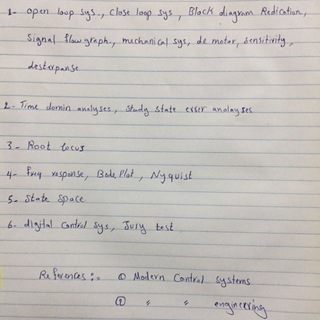 1- open loop sys., close loop sys, Block diagram Redication,
Signal flow graph, mechanical sys, dc motor, sensitivity,
desterpanse
2- Time domin analyses, study state erser analayses
3- Root locus
4- freq response, Bode Plot, Nyquist
5- state space
6- digital control sys., Jury test
References:- ① Modern Control systems
② " " engineering